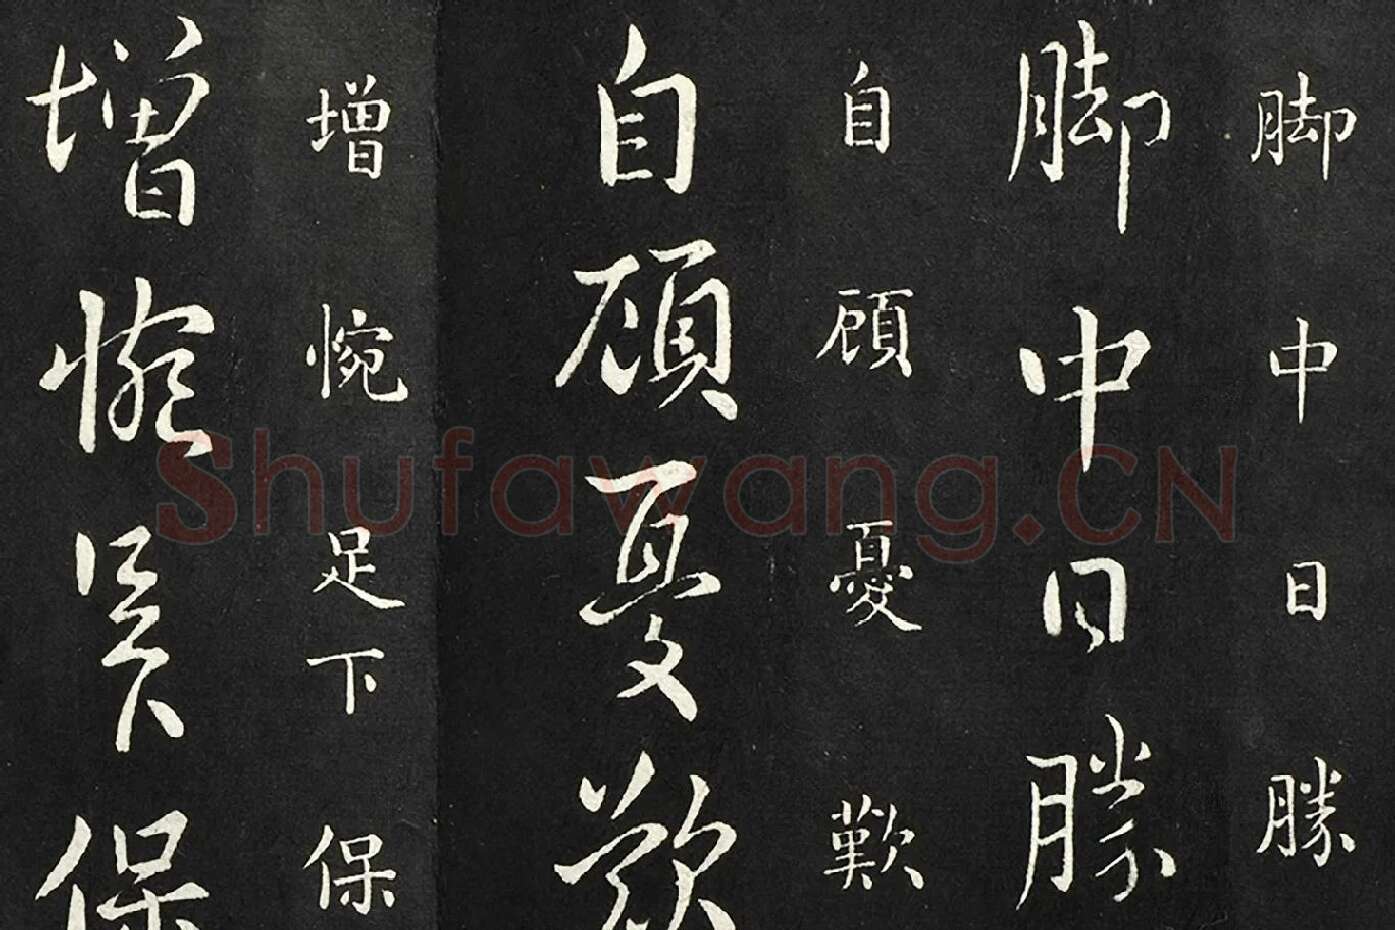 脚中日勝
脚中日勝
自顧憂歎
自顧憂歎
增惋足下保
增惋足下保
Shufawang.CN